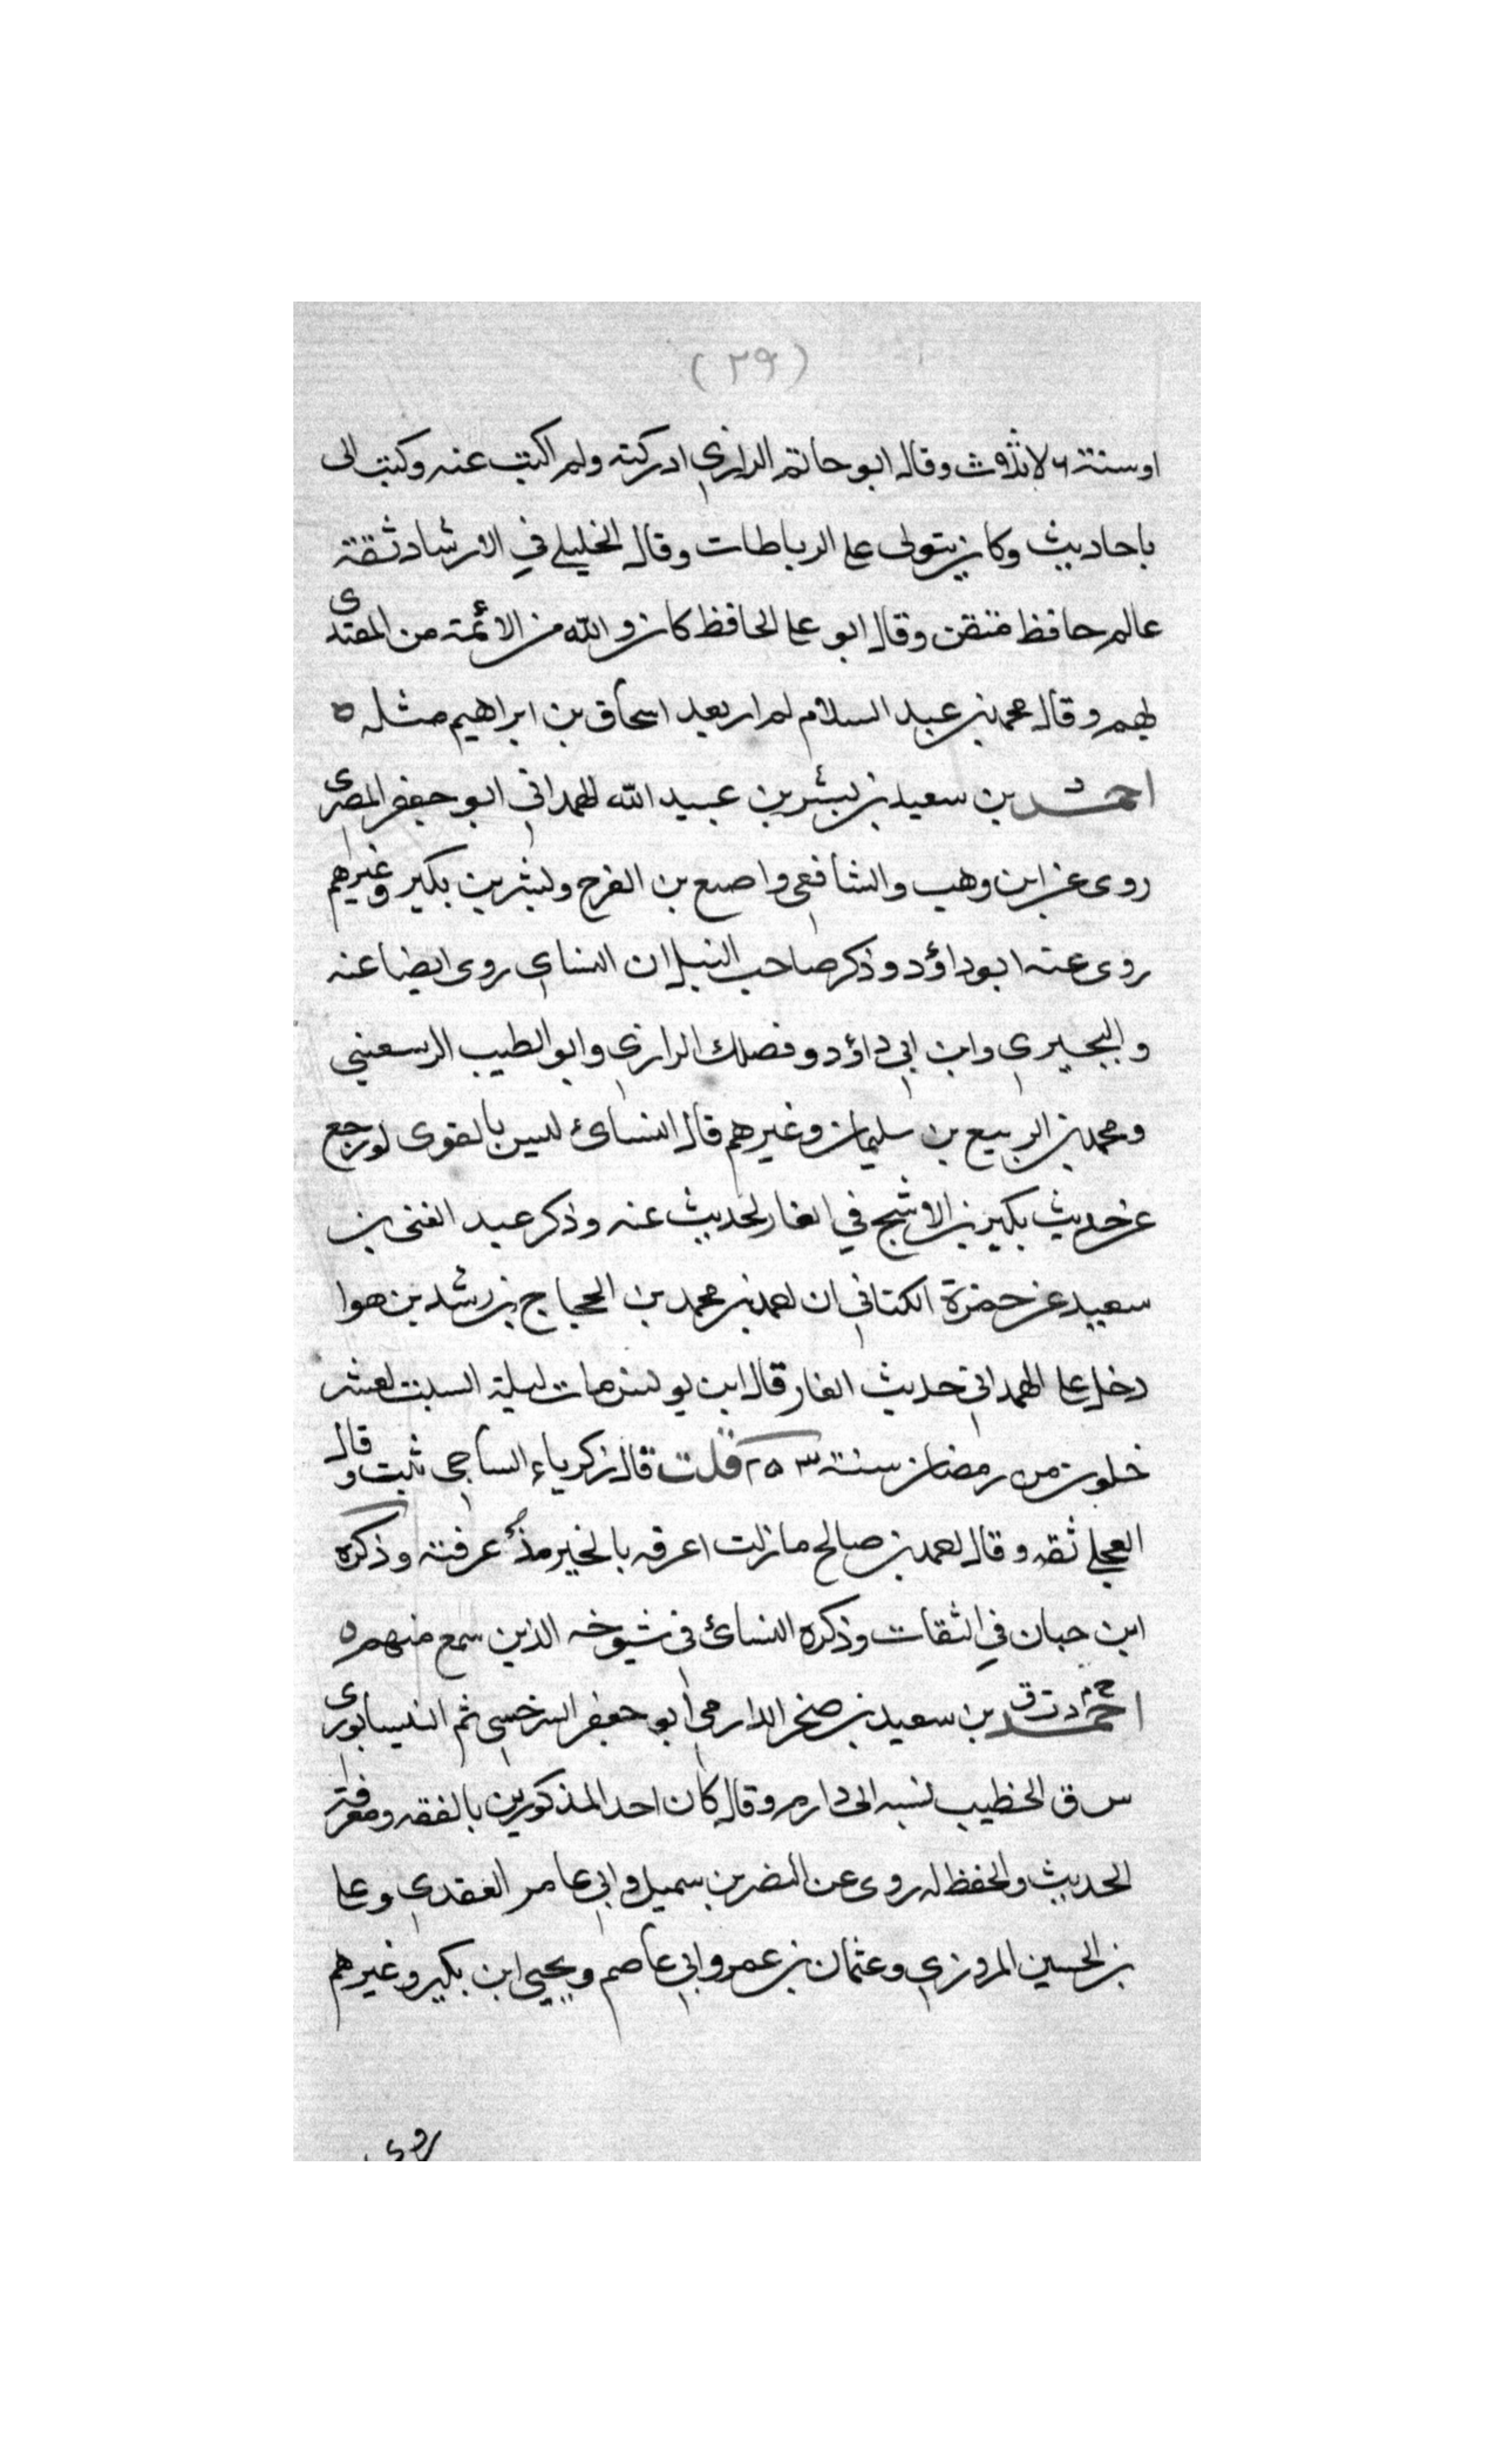 (٢٩)
او سنة وقال ابو حاتم الرازي ادركته ولم اكتب عنه وكتب الى
باحاديث وكان يتولى على الرباطات وقال الخليلي في الارشاد ثقة
عالم حافظ متقن وقال ابو على الحافظ كان والله من الائمة من المقتدى
بهم وقال محمد بن عبد السلام لم ار بعد اسحاق بن ابراهيم مثله ه
احمد بن سعيد بن بشر بن عبيد الله الهمداني ابو جعفر المصرى
روى عن ابن وهب والشافعي واصبع بن الفرج وبشر بن بكير وغيرهم
روى عنه ابو داؤد وذكر صاحب النبل ان النساي روى ايضا عنه
والبجيري وابن ابي داؤد وفضلك الرازي وابو الطيب الرسعيني
ومحمد بن الربيع بن سليمان وغيرهم قال النسائ ليس بالقوى لو رجع
عن حديث بكير بن الاشج في الغار لحديث عنه وذكر عبد الغني بن
سعيد عن حمزة الكتاني ان احمد بن محمد بن الحجاج بن رشد بن هوا
دخل على الهمداني حديث الغار قال ابن يونس مات ليلة السبت لعشر
خلون من رمضان سنة ٢٥٣ قلت قال زكرياء الساجي ثبت وقال
العجلي ثقه وقال احمد بن صالح ما زلت اعرفه بالخير مذ عرفته وذكره
ابن حبان في الثقات وذكره النسائ في شيوخه الذين سمع منهم ه
احمد بن سعيد بن صخر الدارمي ابو جعفر السرخسي ثم النيسابورى
س ق الخطيب نسبه الى دارم وقال كان احد المذكورين بالفقه ومعرفة
الحديث والحفظ له روى عن النضر بن سميل وابي عامر العقدي وعلى
بن الحسين المروزي وعثمان بن عمر وابي عاصم ويحيى ابن بكير وغيرهم
روى